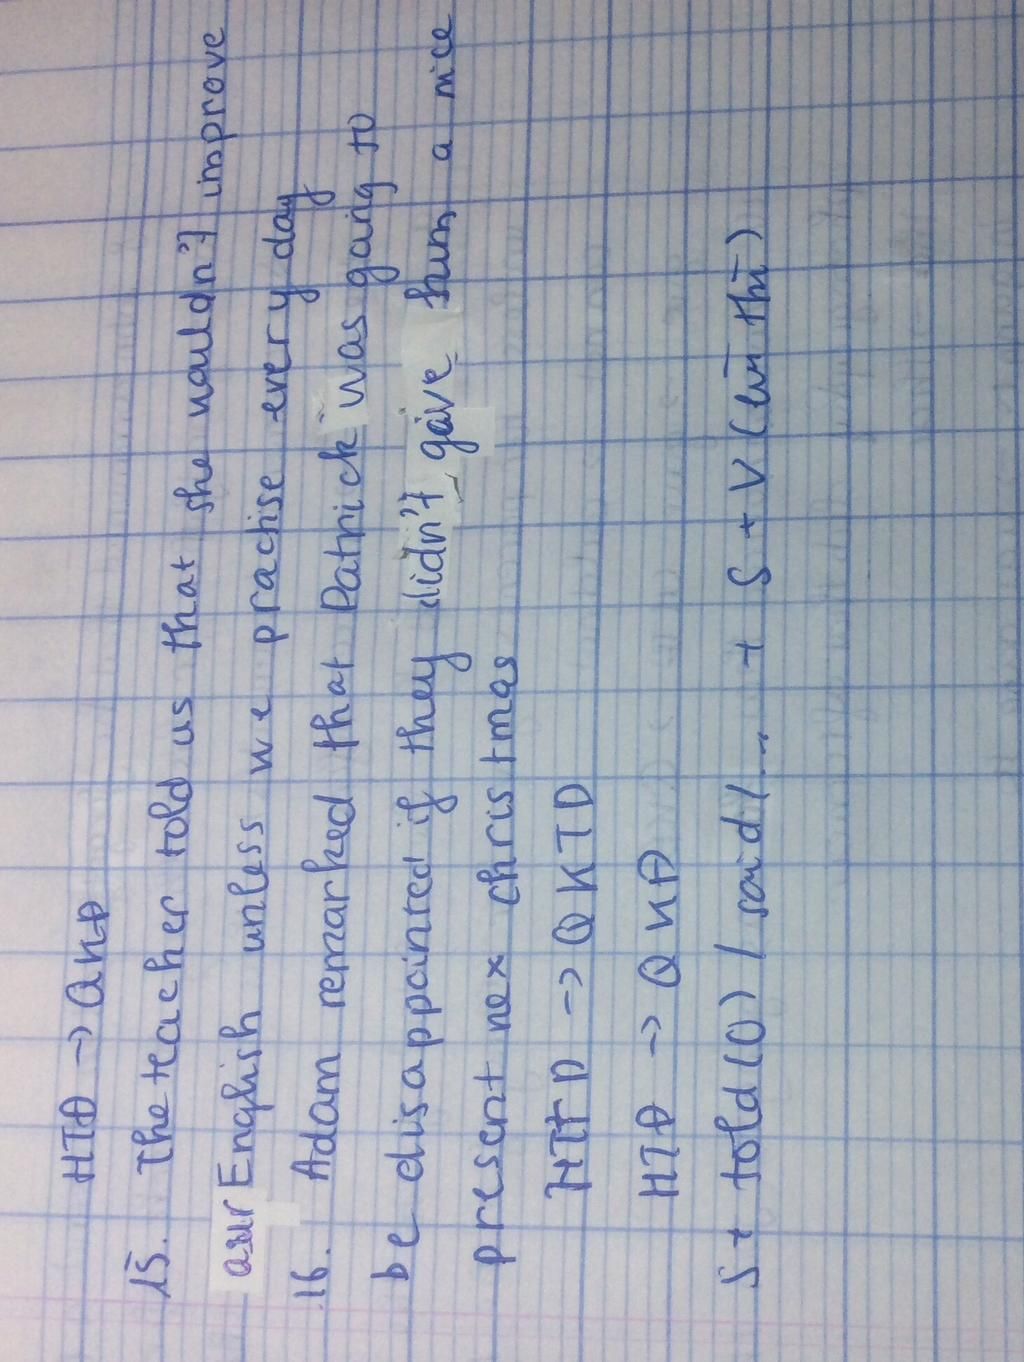 HTĐ -> QKĐ
15. The teacher told us that she wouldn't improve
our English unless we practise every day
16. Adam remarked that Patrick was going to
be disappointed if they didn't give him a nice
present nex christmas
HTTD -> QKTD
HTĐ -> QKĐ
S + told (O) / said / ... + S + V (lùi thì)